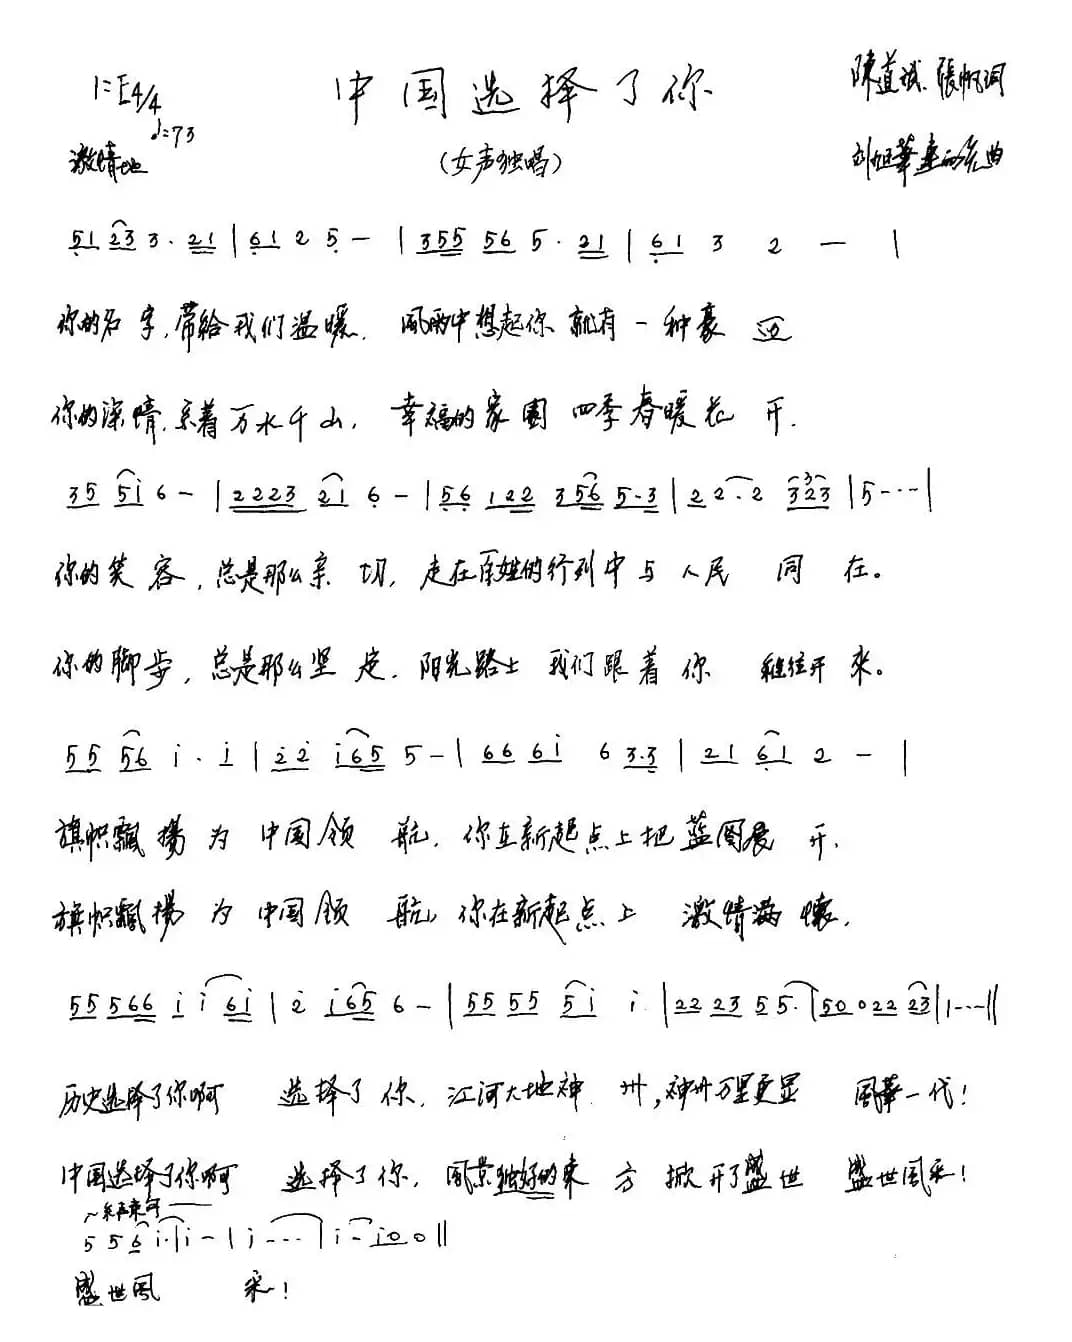 中国选择了你
1=E 4/4
♩=73
激情地
(女声独唱)
陳道斌、張帆词
刘旭華 曲
51 23 3. 21 | 61 2 5 — | 355 56 5. 21 | 61 3 2 — |
你的名字,带给我们温暖. 風雨中想起你 就有一种豪迈
你的深情,系着万水千山, 幸福的家園 四季春暖花开.
35 5i 6 — | 2223 21 6 — | 56 122 356 5.3 | 2 2. 2 323 | 5--- |
你的笑容,总是那么亲切, 走在百姓的行列中与人民 同 在。
你的脚步,总是那么坚定. 阳光路上 我们跟着你 继往开來。
55 56 i. i | ii i65 5 — | 66 6i 6 3.3 | 21 61 2 — |
旗帜飄揚 为 中国领 航, 你在新起点上把蓝图展 开,
旗帜飄揚 为 中国领 航, 你在新起点上 激情满懷,
55 566 i i 6i | 2 i65 6 — | 55 55 5i i. | 22 23 5 5. | 50 022 23 | 1--- ||
历史选择了你啊 选择了你, 江河大地神 州,神州万里更显 風華一代!
中国选择了你啊 选择了你, 風景独好的東 方 掀开了盛世 盛世風采!
5 5 6 i. | i — | i --- | i — i0 0 ||
盛世風 采!